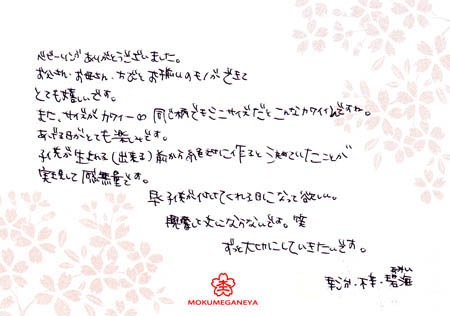 ベビーリングありがとうございました。
お父さん、お母さん、ちびとお揃いのモノができて
とても嬉しいです。
また、サイズがカワイーの 同じ柄でもミニサイズだとこんなカワイイんですね。
あげる日がとても楽しみです。
子供が生まれる(出来る)前から絶対に作ると決めていたことが
実現して感無量です。
早く子供が付けてくれる日になって欲しい。
興奮して文にならないですよ。笑
ずっと大切にしていきたいです。
碧海
MOKUMEGANEYA